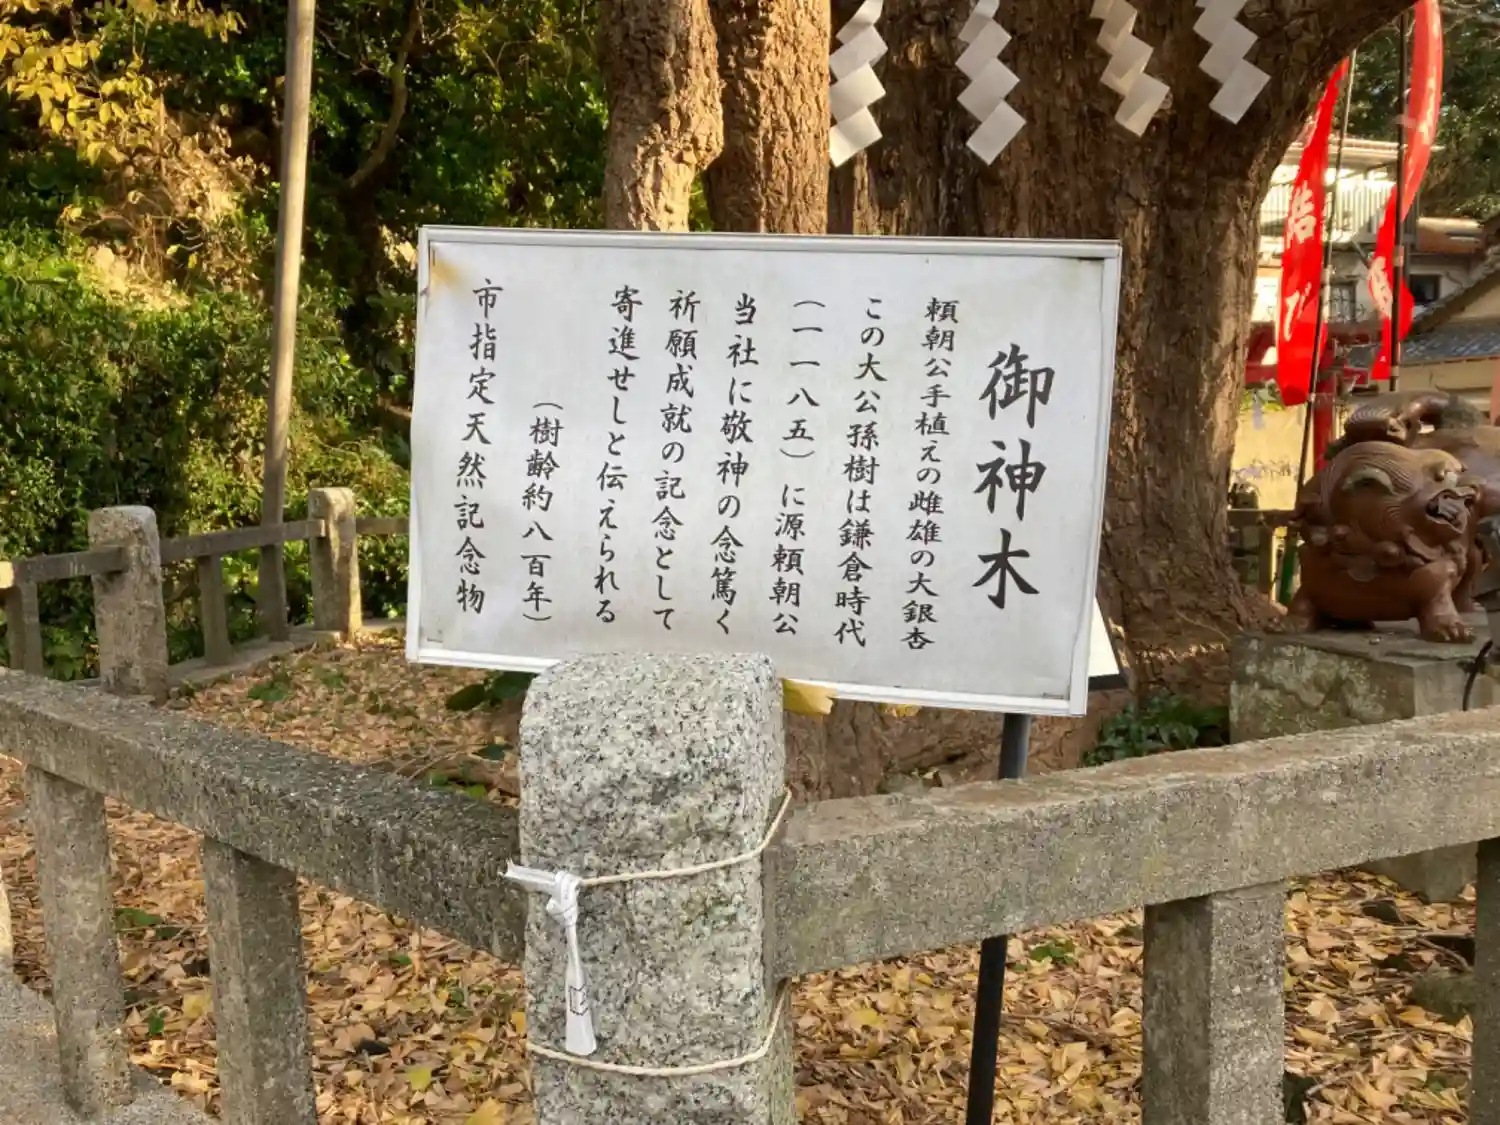 御神木
頼朝公手植えの雌雄の大銀杏
この大公孫樹は鎌倉時代
（一一八五）に源頼朝公
当社に敬神の念篤く
祈願成就の記念として
寄進せしと伝えられる
（樹齢約八百年）
市指定天然記念物
結び